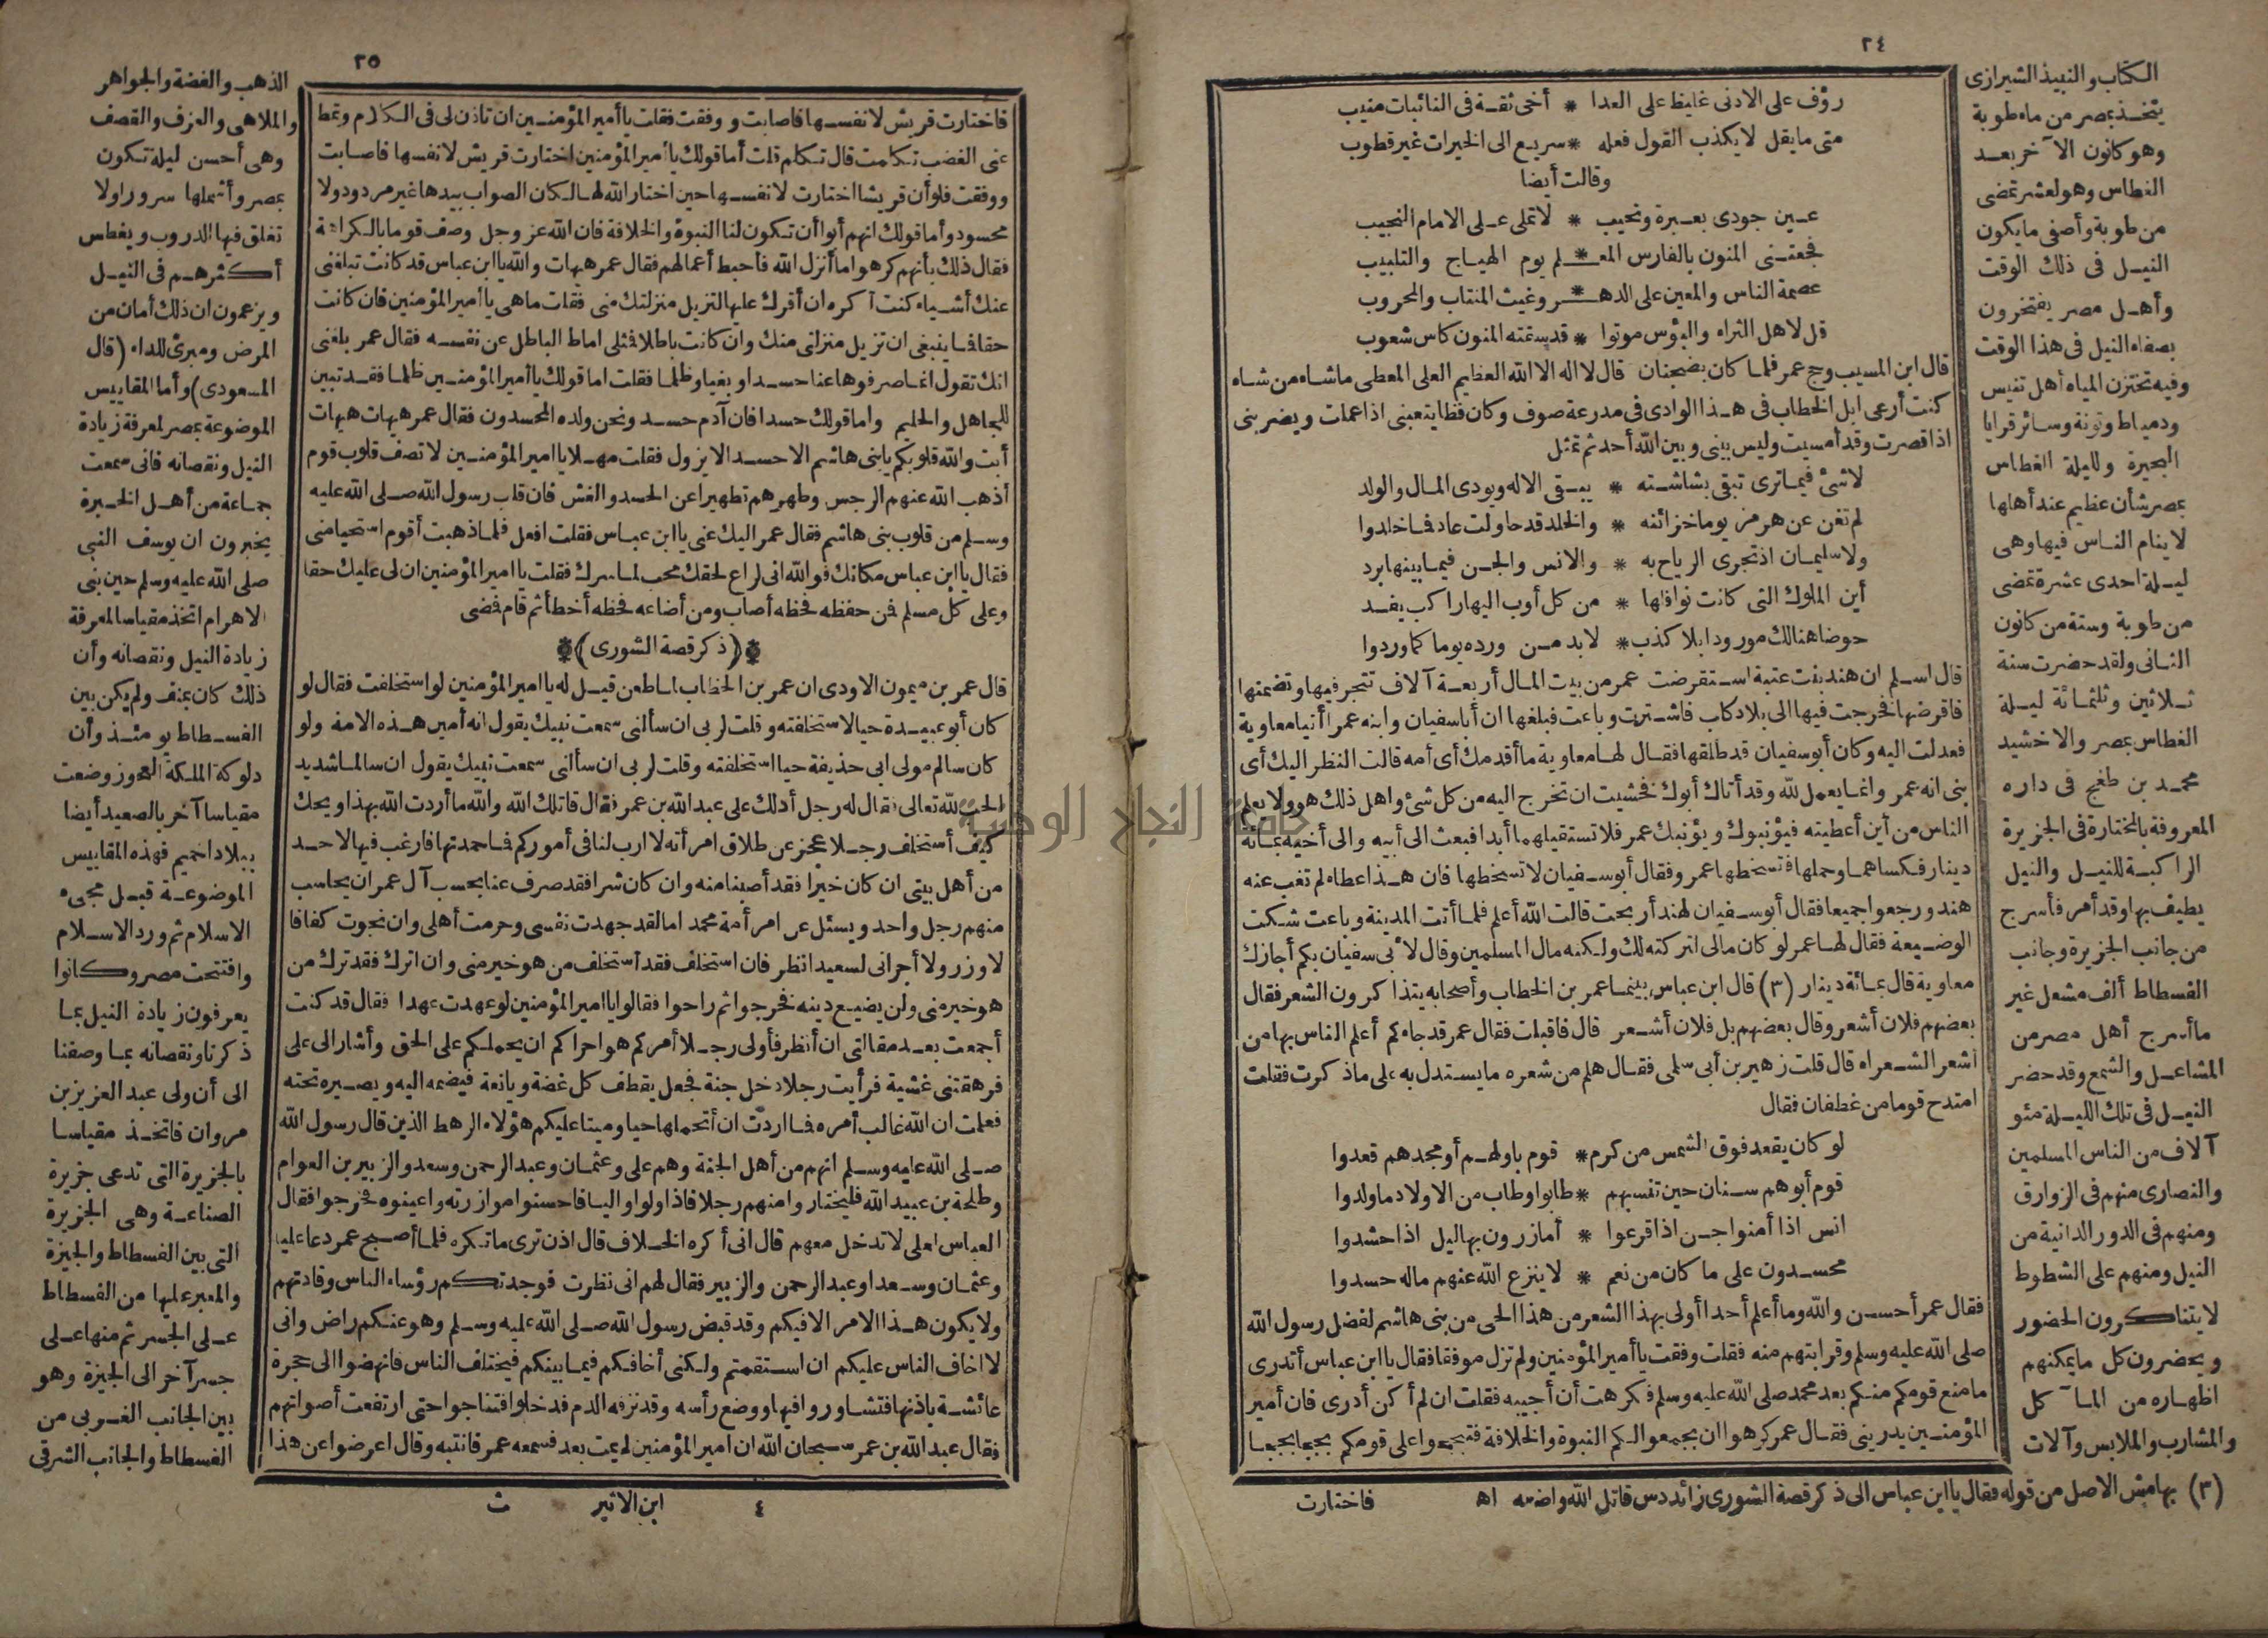 ٢٤
رؤف على الادنى غليظ على العدا * أخى ثقة فى النائبات منيب
متى ما يقل لا يكذب القول فعله * سريع الى الخيرات غير قطوب
وقالت أيضا
عين جودى بعبرة ونحيب * لاتملى على الامام النجيب
فجعتنى المنون بالفارس المعـ * ـلم يوم الهياج والتلبيب
عصمة الناس والمعين على الدهـ * ـر وغيث المنتاب والمحروب
قل لاهل الثراء والبؤس موتوا * قد سقته المنون كاس شعوب
قال ابن المسيب وحج عمر فلما كان بضجنان قال لا اله الا الله العظيم العلى المعطى ماشاء من شاء
كنت أرعى ابل الخطاب فى هذا الوادى فى مدرعة صوف وكان فظا يتعبنى اذا عملت ويضربنى
اذا قصرت وقد أمسيت وليس بينى وبين الله أحد ثم تمثل
لاشئ فيما ترى تبقى بشاشته * يبقى الاله ويودى المال والولد
لم تغن عن هرمز يوما خزائنه * والخلد قد حاولت عاد فما خلدوا
ولا سليمان اذ تجرى الرياح به * والانس والجن فيما بينها برد
أين الملوك التى كانت نوافلها * من كل أوب اليها راكب يفد
حوضا هنالك مورودا بلا كذب * لابد من ورده يوما كما وردوا
قال اسلم ان هند بنت عتبة استقرضت عمر من بيت المال أربعة آلاف تتجر فيها وتضمنها
فاقرضها فخرجت فيها الى بلاد كلب فاشترت وباعت فبلغها ان أباسفيان وابنه عمرا أتيا معاوية
فعدلت اليه وكان أبوسفيان قد طلقها فقال لها معاوية ما أقدمك أى أمه قالت النظر اليك أى
بنى انه عمر وانما يعمل لله وقد أتاك أبوك فخشيت ان تخرج اليه من كل شئ واهل ذلك هو ولا يعلم
الناس من أين أعطيته فيؤنبوك ويؤنبك عمر فلا تستقيلها أبدا فبعث الى أبيه والى أخيه بمائة
دينار فكساهما وحملها فتسخطها عمرو فقال أبوسفيان لا تسخطها فان هذا عطاء لم تغب عنه
هند ورجعوا جميعا فقال أبوسفيان لهند أربحت قالت الله أعلم فلما أتت المدينة وباعت شكت
الوضيعة فقال لها عمر لو كان مالى لتركته لك ولكنه مال المسلمين وقال لابى سفيان بكم أجازك
معاوية قال بمائة دينار (٣) قال ابن عباس بينما عمر بن الخطاب وأصحابه يتذاكرون الشعر فقال
بعضهم فلان أشعر وقال بعضهم بل فلان أشعر قال فاقبلت فقال عمر قد جاءكم أعلم الناس بها من
أشعر الشعراء قال قلت زهير بن أبى سلمى فقال هلم من شعره ما يستدل به على ما ذكرت فقلت
امتدح قوما من غطفان فقال
لو كان يقعد فوق الشمس من كرم * قوم باولهم أو مجدهم قعدوا
قوم أبوهم سنان حين تنسبهم * طابوا وطاب من الاولاد ما ولدوا
انس اذا أمنوا جن اذا فزعوا * أمازرون بهاليل اذا حشدوا
محسدون على ما كان من نعم * لا ينزع الله عنهم ماله حسدوا
فقال عمر أحسن والله وما أعلم أحدا أولى بهذا الشعر من هذا الحى من بنى هاشم لفضل رسول الله
صلى الله عليه وسلم وقرابتهم منه فقلت وفقت يا أمير المؤمنين ولم تزل موفقا فقال يا ابن عباس أتدرى
ما منع قومكم منكم بعد محمد صلى الله عليه وسلم فكرهت أن أجيبه فقلت ان لم أكن أدرى فان أمير
المؤمنين يدرينى فقال عمر كرهوا ان يجمعوا لكم النبوة والخلافة فتبجحوا على قومكم بجحا بجحا
(٣) بهامش الاصل من قوله فقال يا ابن عباس الى ذكر قصة الشورى زائد دس قاتل الله واضعه اه
فاختارت
الكتاب والنبيذ الشيرازى
يتخذ بمصر من ماء طوبة
وهو كانون الآخر بعد
الغطاس وهو لعشر تمضى
من طوبة وأصفى ما يكون
النيل فى ذلك الوقت
وأهل مصر يفتخرون
بصفاء النيل فى هذا الوقت
وفيه تختزن المياه أهل تنيس
ودمياط وتونة وسائر قرايا
البحيرة ولليلة الغطاس
بمصر شأن عظيم عند أهلها
لا ينام الناس فيها وهى
ليلة احدى عشرة تمضى
من طوبة وستة من كانون
الثانى ولقد حضرت سنة
ثلاثين وثلثمائة ليلة
الغطاس بمصر والاخشيد
محمد بن طغج فى داره
المعروفة بالمختارة فى الجزيرة
الراكبة للنيل والنيل
يطيف بها وقد أمر فأسرج
من جانب الجزيرة وجانب
الفسطاط ألف مشعل غير
ما أسرج أهل مصر من
المشاعل والشمع وقد حضر
النيل فى تلك الليلة مئو
آلاف من الناس المسلمين
والنصارى منهم فى الزوارق
ومنهم فى الدور الدانية من
النيل ومنهم على الشطوط
لا يتناكرون الحضور
ويحضرون كل ما يمكنهم
اظهاره من المآكل
والمشارب والملابس وآلات
٢٥
فاختارت قريش لانفسها فاصابت ووفقت فقلت يا أمير المؤمنين ان تاذن لى فى الكلام وتمط
عنى الغضب تكلمت قال تكلم قلت أما قولك يا أمير المؤمنين اختارت قريش لانفسها فاصابت
ووفقت فلو أن قريشا اختارت لانفسها حين اختار الله لها لكان الصواب بيدها غير مردود ولا
محسود وأما قولك انهم أبوا أن تكون لنا النبوة والخلافة فان الله عز وجل وصف قوما بالكراهة
فقال ذلك بأنهم كرهوا ما أنزل الله فأحبط أعمالهم فقال عمر هيهات والله يا ابن عباس قد كانت تبلغنى
عنك أشياء كنت أكره ان أقرك عليها لتزيل منزلتك منى فقلت ما هى يا أمير المؤمنين فان كانت
حقا فما ينبغى ان تزيل منزلتى منك وان كانت باطلا فمثلى اماط الباطل عن نفسه فقال عمر بلغنى
انك تقول انما صرفوها عنا حسدا وبغيا وظلما فقلت اما قولك يا أمير المؤمنين ظلما فقد تبين
للجاهل والحليم واما قولك حسدا فان آدم حسد ونحن ولده المحسدون فقال عمر هيهات هيهات
أبت والله قلوبكم يا بنى هاشم الا حسدا لا يزول فقلت مهلا يا امير المؤمنين لا تصف قلوب قوم
أذهب الله عنهم الرجس وطهرهم تطهيرا عن الحسد والغش فان قلب رسول الله صلى الله عليه
وسلم من قلوب بنى هاشم فقال عمر اليك عنى يا ابن عباس فقلت افعل فلما ذهبت أقوم استحيا منى
فقال يا ابن عباس مكانك فوالله انى لراع لحقك محب لما سرك فقلت يا امير المؤمنين ان لى عليك حقا
وعلى كل مسلم فمن حفظه فحظه أصاب ومن أضاعه فحظه أخطأ ثم قام فمضى
(ذكر قصة الشورى)
قال عمر بن ميمون الاودى ان عمر بن الخطاب لما طعن قيل له يا امير المؤمنين لو استخلفت فقال لو
كان أبو عبيدة حيا لاستخلفته وقلت لربى ان سألنى سمعت نبيك يقول انه أمين هذه الامة ولو
كان سالم مولى ابى حذيفة حيا استخلفته وقلت لربى ان سألنى سمعت نبيك يقول ان سالما شديد
الحب لله تعالى فقال له رجل أدلك على عبد الله بن عمر فقال قاتلك الله والله ما أردت الله بهذا ويحك
كيف أستخلف رجلا عجز عن طلاق امرأته لا ارب لنا فى أموركم فما حمدتها فارغب فيها لاحد
من أهل بيتى ان كان خيرا فقد أصبنا منه وان كان شرا فقد صرف عنا بحسب آل عمر ان يحاسب
منهم رجل واحد ويسئل عن امر أمة محمد اما لقد جهدت نفسى وحرمت أهلى وان نجوت كفافا
لا وزر ولا أجر انى لسعيد انظر فان استخلف فقد أستخلف من هو خير منى وان اترك فقد ترك من
هو خير منى ولن يضيع دينه فخرجوا ثم راحوا فقالوا يا امير المؤمنين لو عهدت عهدا فقال قد كنت
أجمعت بعد مقالتى ان أنظر فأولى رجلا أمركم هو احراكم ان يحملكم على الحق وأشار الى على
فرهقتنى غشية فرأيت رجلا دخل جنة فجعل يقطف كل غضة ويانعة فيضمه اليه ويصيره تحته
فعلمت ان الله غالب أمره فما اردت ان أتحملها حيا وميتا عليكم هؤلاء الرهط الذين قال رسول الله
صلى الله عليه وسلم انهم من أهل الجنة وهم على وعثمان وعبد الرحمن وسعد والزبير بن العوام
وطلحة بن عبيد الله فليختاروا منهم رجلا فاذا ولوا واليا فاحسنوا موازرته واعينوه فخرجوا فقال
العباس لعلى لا تدخل معهم قال انى أكره الخلاف قال اذن ترى ما تكره فلما أصبح عمر دعا عليا
وعثمان وسعدا وعبد الرحمن والزبير فقال لهم انى نظرت فوجدتكم رؤساء الناس وقادتهم
ولا يكون هذا الامر الا فيكم وقد قبض رسول الله صلى الله عليه وسلم وهو عنكم راض وانى
لا اخاف الناس عليكم ان استقمتم ولكنى أخافكم فيما بينكم فيختلف الناس فانهضوا الى حجرة
عائشة باذنها فتشاوروا فيها ووضع رأسه وقد نزفه الدم فدخلوا فتناجوا حتى ارتفعت أصواتهم
فقال عبد الله بن عمر سبحان الله ان امير المؤمنين لم يمت بعد فسمعه عمر فانتبه وقال اعرضوا عن هذا
٤ ابن الاثير ث
الذهب والفضة والجواهر
والملاهى والعزف والقصف
وهى أحسن ليلة تكون
بمصر وأشملها سرورا ولا
تغلق فيها الدروب ويغطس
أكثرهم فى النيل
ويزعمون ان ذلك أمان من
المرض ومبرئ للداء (قال
المسعودى) وأما المقاييس
الموضوعة بمصر لمعرفة زيادة
النيل ونقصانه فانى سمعت
جماعة من أهل الخبرة
يخبرون ان يوسف النبى
صلى الله عليه وسلم حين بنى
الاهرام اتخذ مقياسا لمعرفة
زيادة النيل ونقصانه وأن
ذلك كان بمنف ولم يكن بين
الفسطاط يومئذ وأن
دلوكة الملكة العجوز وضعت
مقياسا آخر بالصعيد أيضا
ببلاد اخميم فهذه المقاييس
الموضوعة قبل مجىء
الاسلام ثم ورد الاسلام
وافتتحت مصر وكانوا
يعرفون زيادة النيل بما
ذكرنا ونقصانه بما وصفنا
الى أن ولى عبد العزيز بن
مروان فاتخذ مقياسا
بالجزيرة التى تدعى جزيرة
الصناعة وهى الجزيرة
التى بين الفسطاط والجيزة
والمعبر عليها من الفسطاط
على الجسر ثم منها على
جسر آخر الى الجيزة وهو
بين الجانب الغربى من
الفسطاط والجانب الشرقى
جامعة النجاح الوطنية